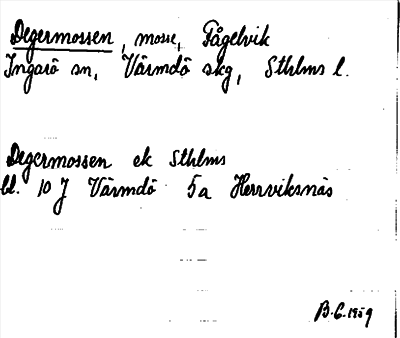 Degermossen, mosse, Fågelvik
Ingarö sn, Värmdö skg, Sthlms l.
Degermossen ek Sthlms
bl. 10 J Värmdö 5a Herrviksnäs
B.C. 1959